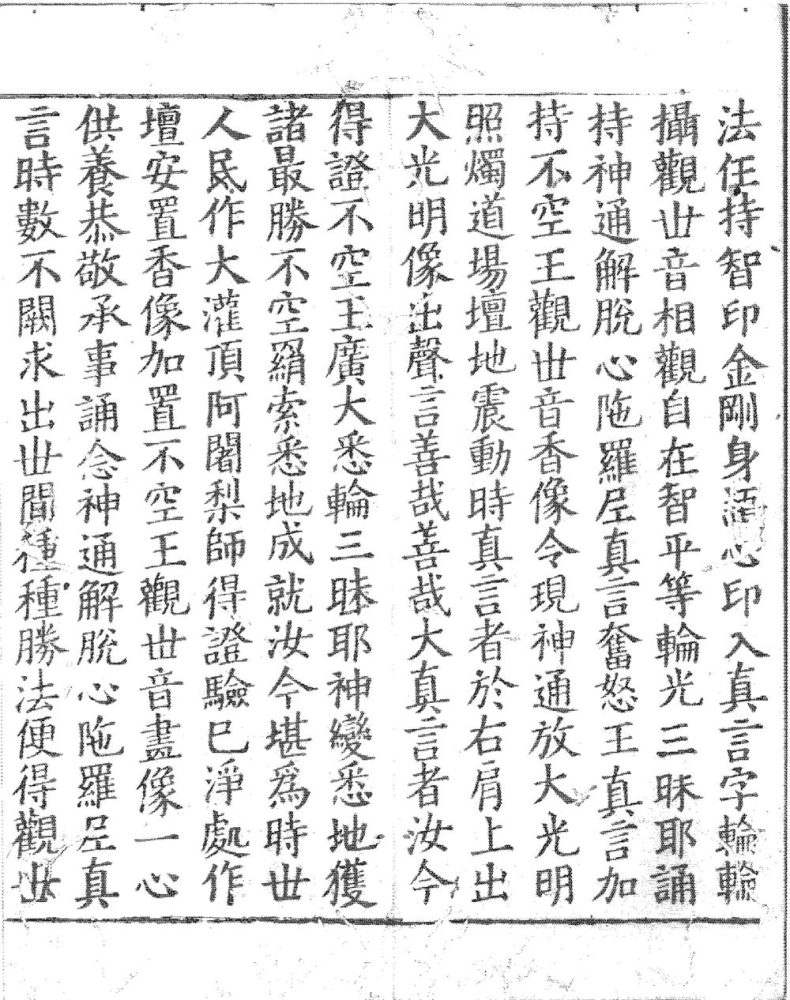 法任持智印金剛身語心印入真言字輪輪
攝觀丗音相觀自在智平等輪光三昧耶誦
持神通解脫心陁羅尼真言奮怒王真言加
持不空王觀丗音香像令現神通放大光明
照燭道場壇地震動時真言者於右肩上出
大光明像出聲言善哉善哉大真言者汝今
得證不空王廣大悉輪三昧耶神變悉地獲
諸最勝不空羂索悉地成就汝今堪爲時丗
人民作大灌頂阿闍梨師得證驗已淨處作
壇安置香像加置不空王觀丗音畫像一心
供養恭敬承事誦念神通解脫心陁羅尼真
言時數不闕求出丗間種種勝法便得觀丗